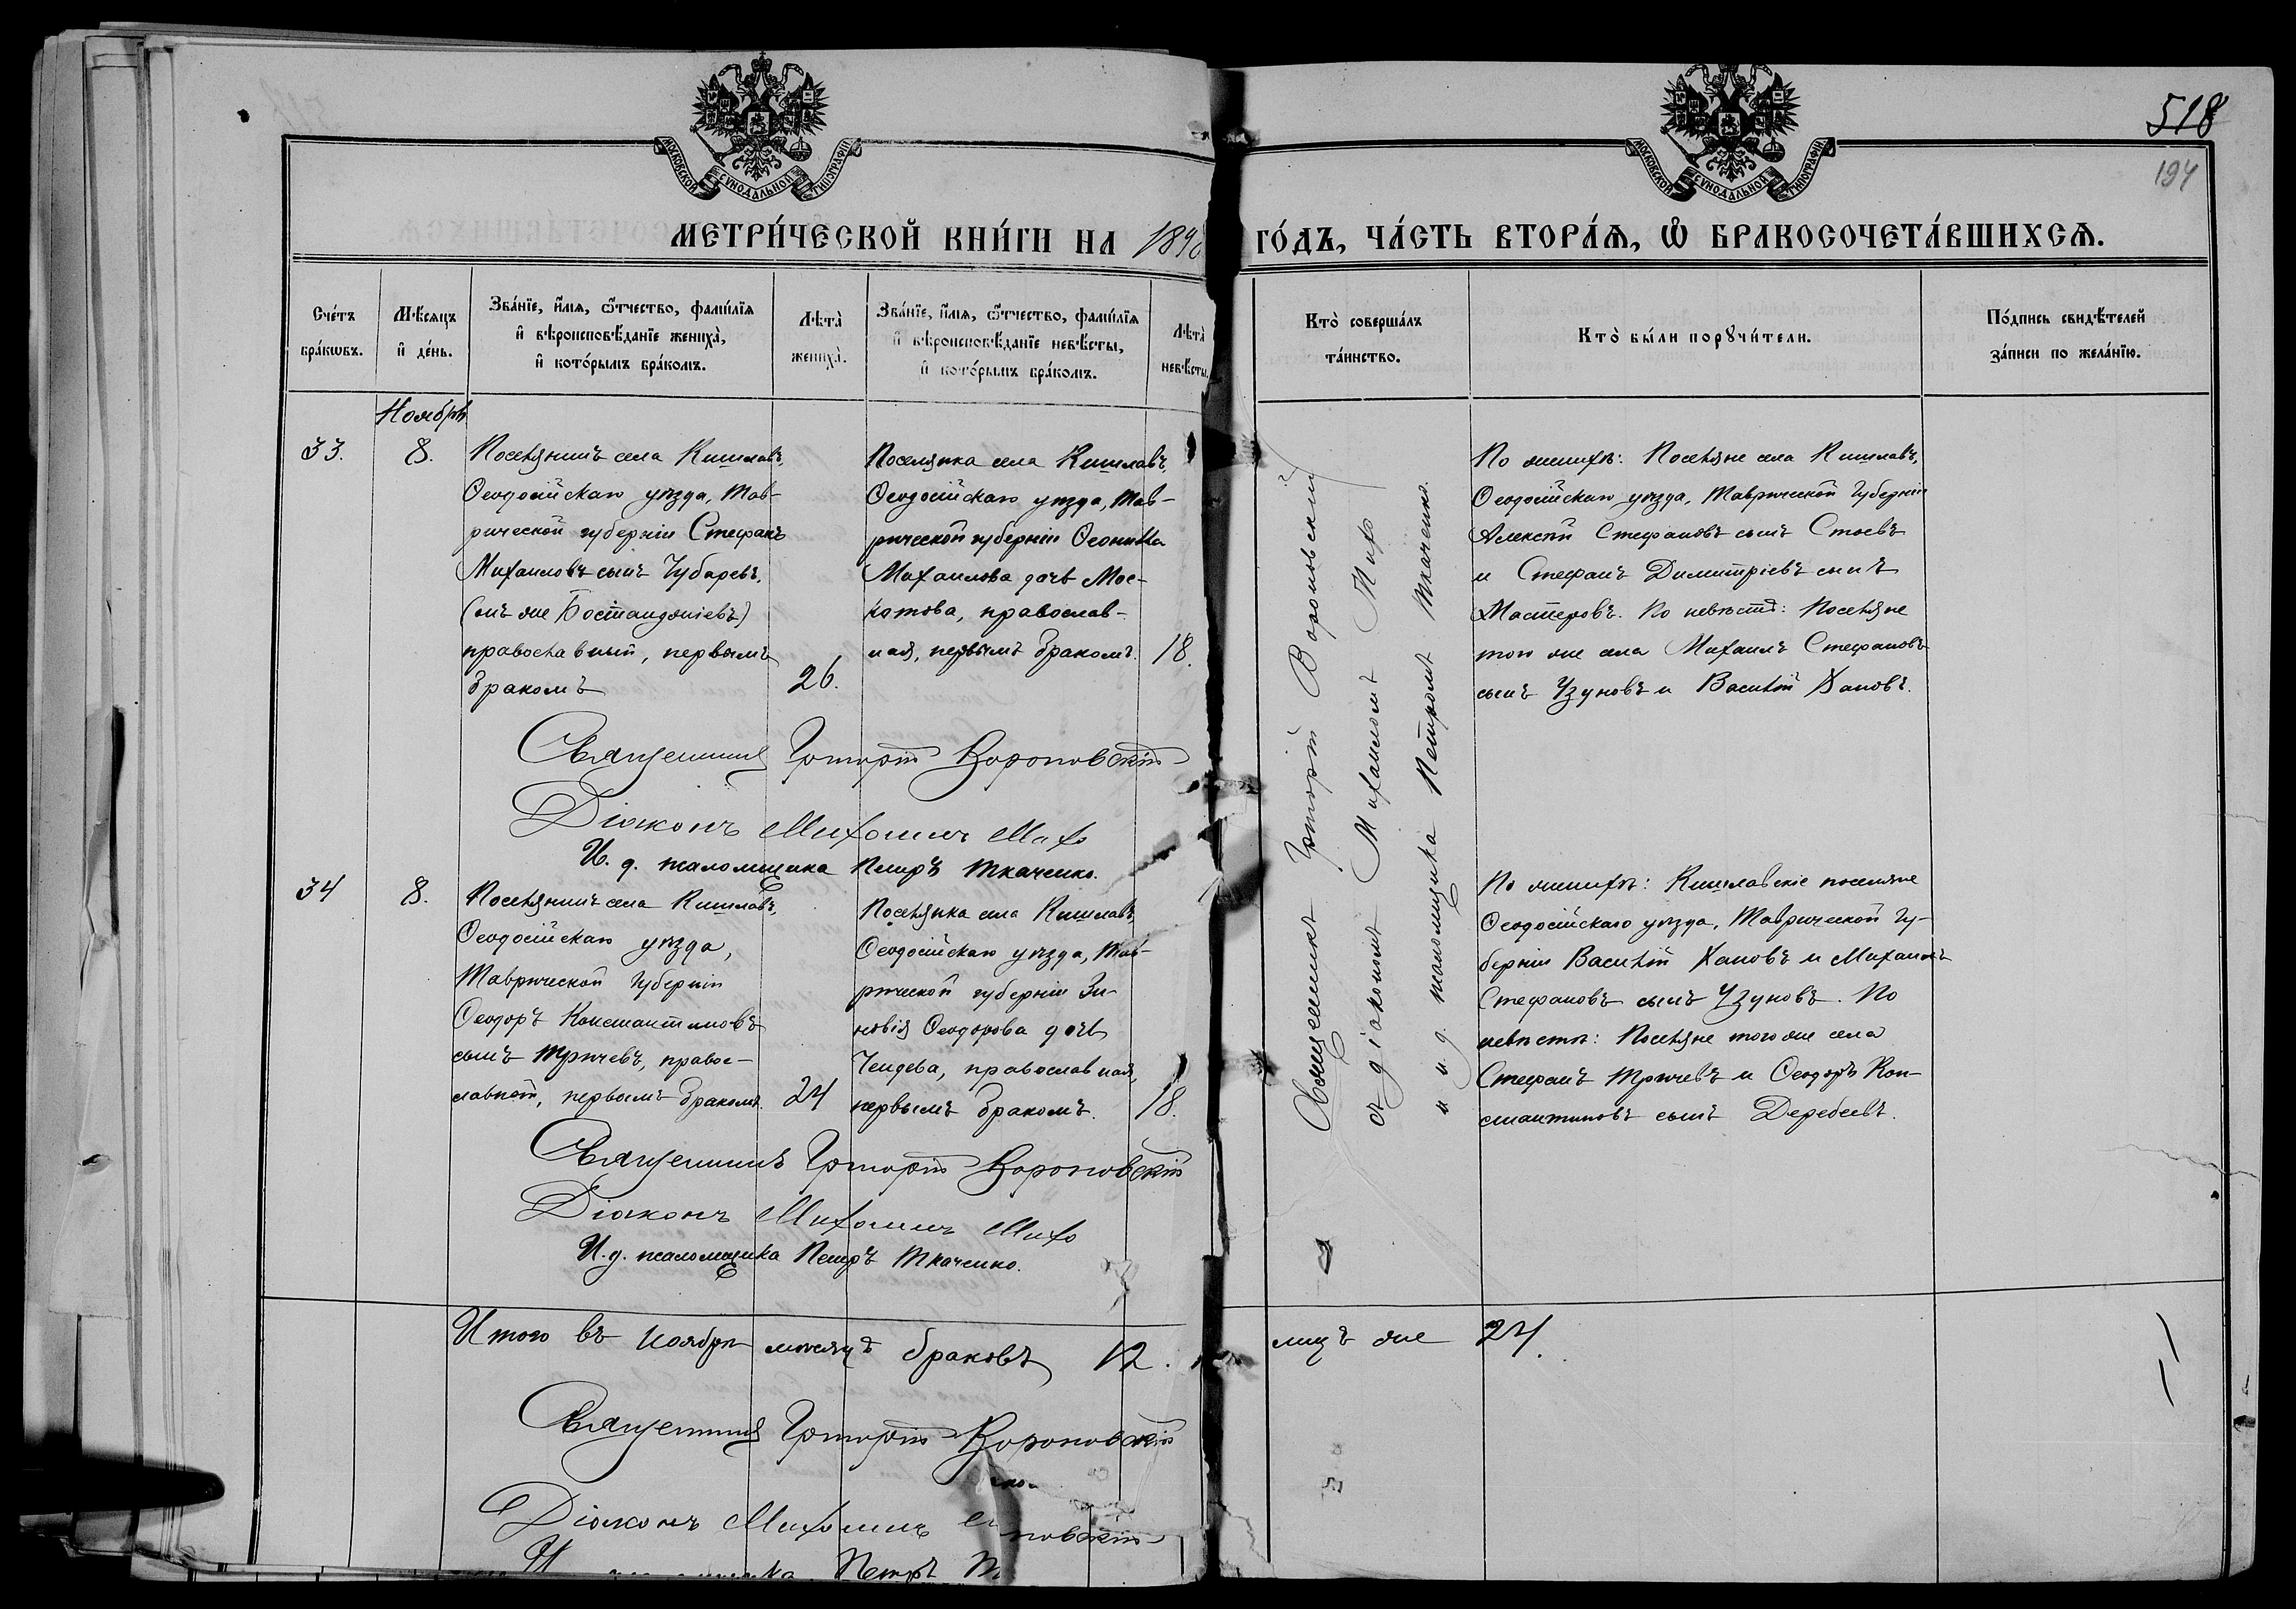 518
194
МОСКОВСКОЙ СѴНОДАЛЬНОЙ ТИПОГРАФІИ
МОСКОВСКОЙ СѴНОДАЛЬНОЙ ТИПОГРАФІИ
МЕТРИ́ЧЕСКОЙ КНИ́ГИ НА 1898
ГО́ДЪ, ЧА́СТЬ ВТОРА́Ѧ, Ѽ БРАКОСОЧЕТА́ВШИХСѦ.
Сче́тъ
бра́кѡвъ.
Мѣ́сяцъ
и҆ де́нь.
Зва́нїе, и҆́мя, ѻ҆́тчество, фами́лїя
и҆ вѣроисповѣ́данїе жениха̀,
и҆ кото́рымъ бра́комъ.
Лѣта̀
жениха̀.
Зва́нїе, и҆́мя, ѻ҆́тчество, фами́лїя
и҆ вѣроисповѣ́данїе невѣ́сты,
и҆ кото́рымъ бра́комъ.
Лѣта̀
невѣ́сты.
Кто̀ соверша́лъ
та́инство.
Кто̀ бы́ли порꙋчи́тели.
По́дпись свидѣ́телей
за́писи по жела́нїю.
Ноябрь
33.
8.
Поселянинъ села Кишлавъ,
Ѳеодосійскаго уѣзда, Тав-
рической губерніи Стефанъ
Михаиловъ сынъ Чубаревъ,
(онъ же Бостанджіевъ)
православный, первымъ
бракомъ
26.
Поселянка села Кишлавъ,
Ѳеодосійскаго уѣзда, Тав-
рической губерніи Ѳеонилла
Михаилова дочь Мос-
катова, православ-
ная, первымъ бракомъ.
18.
Священникъ Григорій Вороновскій
съ діакономъ Михаиломъ Михо
и и. д. псаломщика Петромъ Ткаченко.
По женихѣ: Поселяне села Кишлавъ,
Ѳеодосійскаго уѣзда, Таврической губерніи
Алексѣй Стефановъ сынъ Стоевъ
и Стефанъ Димитріевъ сынъ
Мастеровъ. По невѣстѣ: Поселяне
того же села Михаилъ Стефановъ
сынъ Узуновъ и Василій Хановъ.
Священникъ Григорій Вороновскій
Діаконъ Михаилъ Михо
И. д. псаломщика Петръ Ткаченко.
34
8.
Поселянинъ села Кишлавъ,
Ѳеодосійскаго уѣзда,
Таврической губерніи
Ѳеодоръ Константиновъ
сынъ Тричевъ, правос-
лавный, первымъ бракомъ.
24
Поселянка села Кишлавъ
Ѳеодосійскаго уѣзда, Тав-
рической губерніи Зи-
новія Ѳеодорова дочь
Чендева, православная,
первымъ бракомъ.
18.
По женихѣ: Кишлавскіе поселяне
Ѳеодосійскаго уѣзда, Таврической гу-
берніи Василій Хановъ и Михаилъ
Стефановъ сынъ Узуновъ. По
невѣстѣ: Поселяне того же села
Стефанъ Тричевъ и Ѳеодоръ Кон-
стантиновъ сынъ Деребеевъ.
Священникъ Григорій Вороновскій
Діаконъ Михаилъ Михо
И. д. псаломщика Петръ Ткаченко.
Итого въ ноябрѣ мѣсяцѣ браковъ 12.
лицъ же 24.
Священникъ Григорій Вороновскій
Діаконъ Михаилъ
Петръ